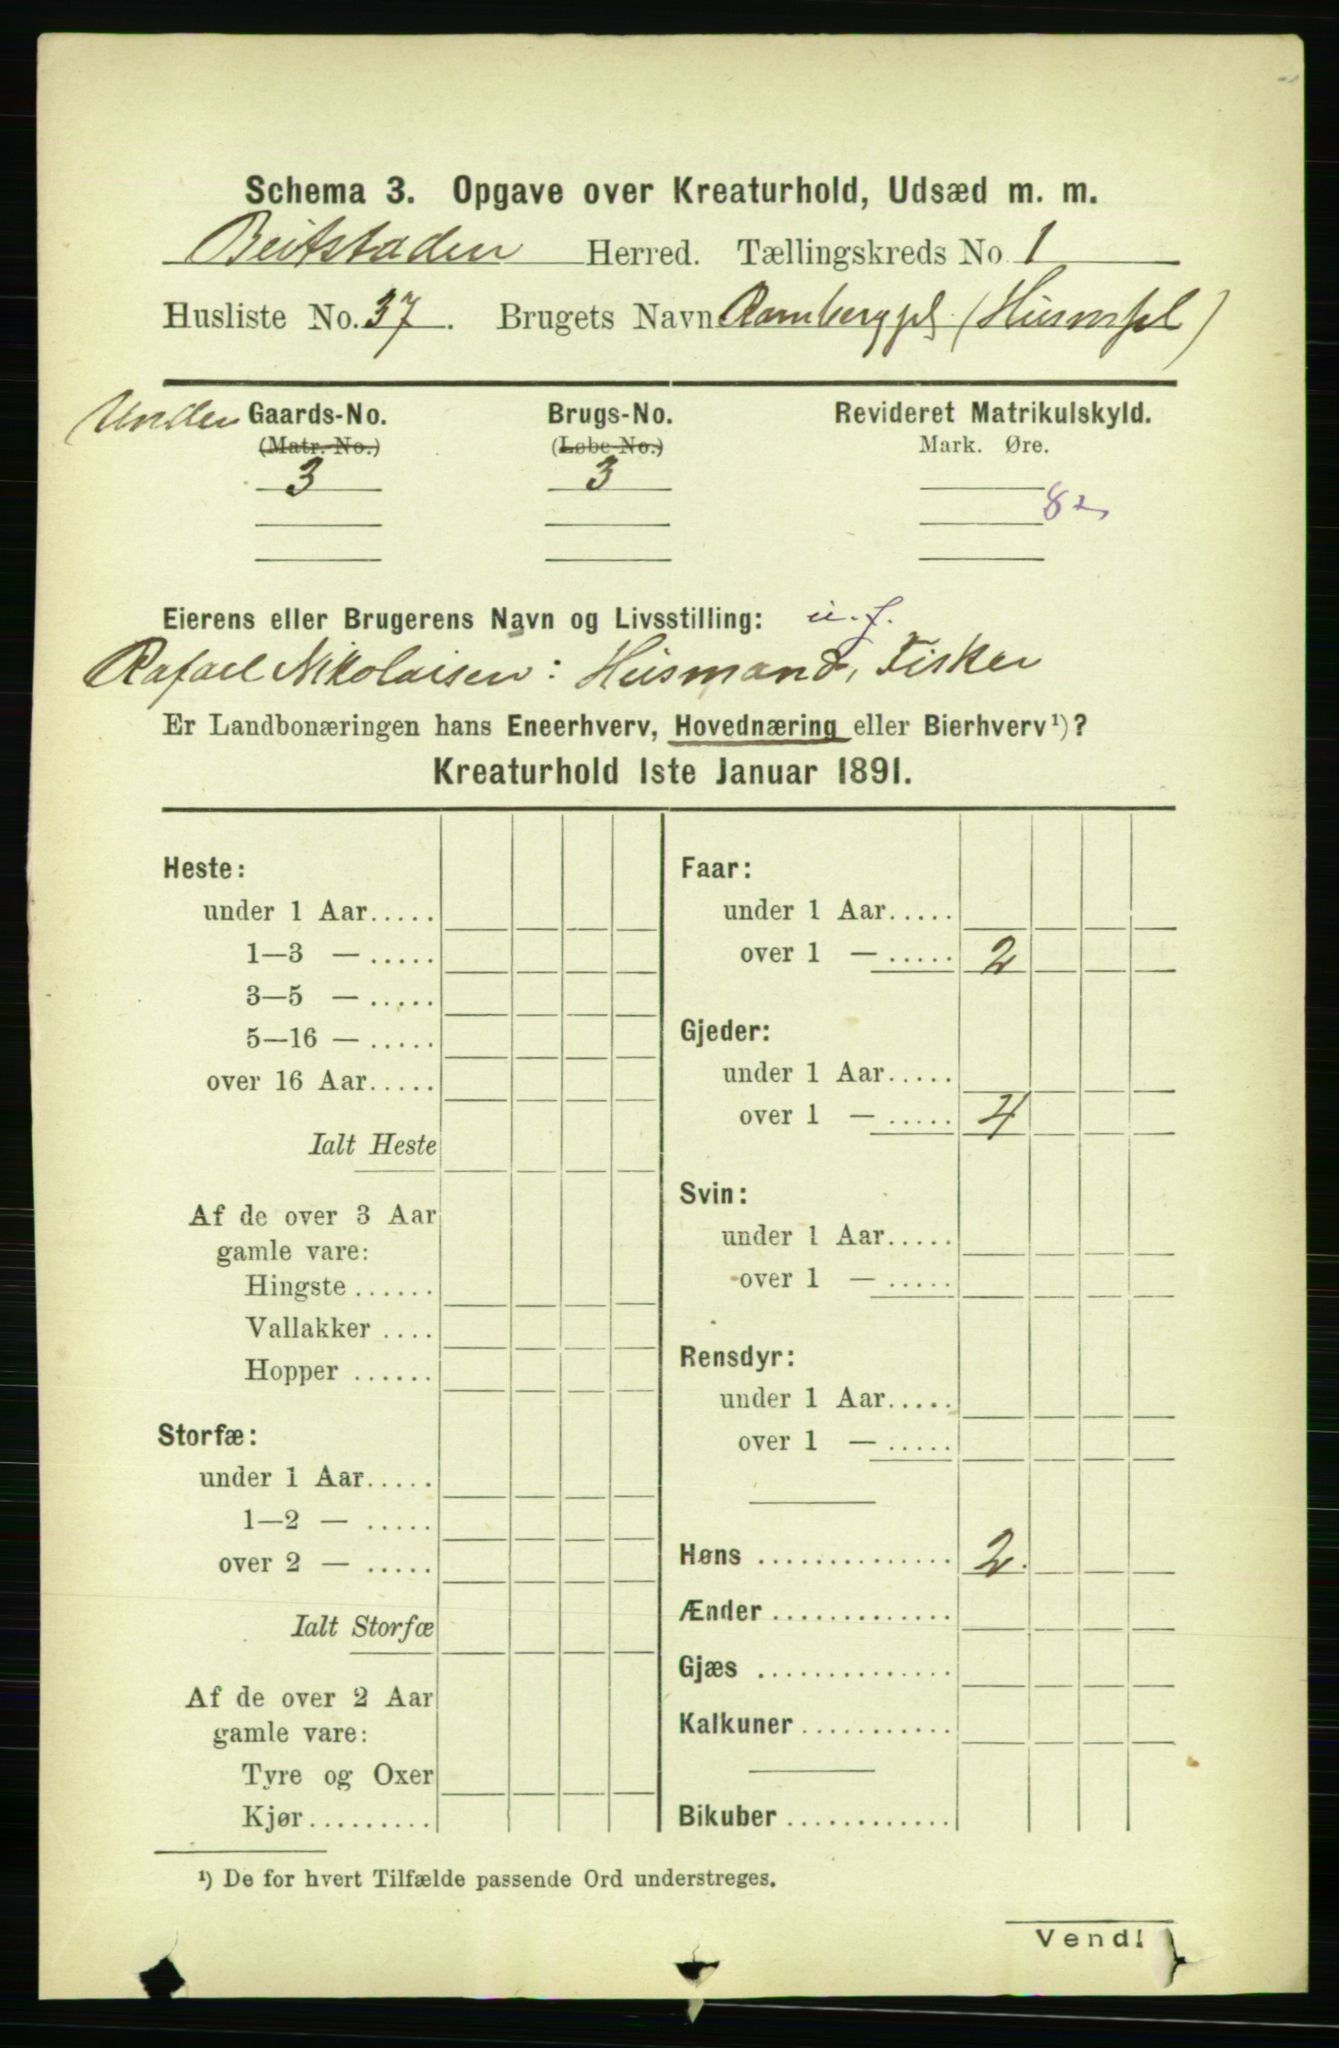 Schema 3. Opgave over Kreaturhold, Udsæd m. m.
Beitstaden Herred. Tællingskreds No. 1
Husliste No. 37. Brugets Navn Ramberg pl. (Husmpl)
Under Gaards-No. Brugs-No. Revideret Matrikulskyld.
(Matr. No.) (Løbe No.) Mark. Øre.
3 3
82
Eierens eller Brugerens Navn og Livsstilling: u. f.
Rafael Nikolaisen: Husmand, Fisker
Er Landbonæringen hans Eneerhverv, Hovednæring eller Bierhverv¹)?
Kreaturhold 1ste Januar 1891.
Heste:
under 1 Aar.....
1—3 — .....
3—5 — .....
5—16 — .....
over 16 Aar.....
Ialt Heste
Af de over 3 Aar
gamle vare:
Hingste ......
Vallakker ....
Hopper ......
Storfæ:
under 1 Aar.....
1—2 — .....
over 2 — .....
Ialt Storfæ
Af de over 2 Aar
gamle vare:
Tyre og Oxer
Kjør.........
Faar:
under 1 Aar.....
over 1 — ..... 2
Gjeder:
under 1 Aar.....
over 1 — ..... 4
Svin:
under 1 Aar.....
over 1 — .....
Rensdyr:
under 1 Aar.....
over 1 — .....
Høns .............. 2.
Ænder .............
Gjæs ..............
Kalkuner ...........
Bikuber ............
¹) De for hvert Tilfælde passende Ord understreges.
Vend!